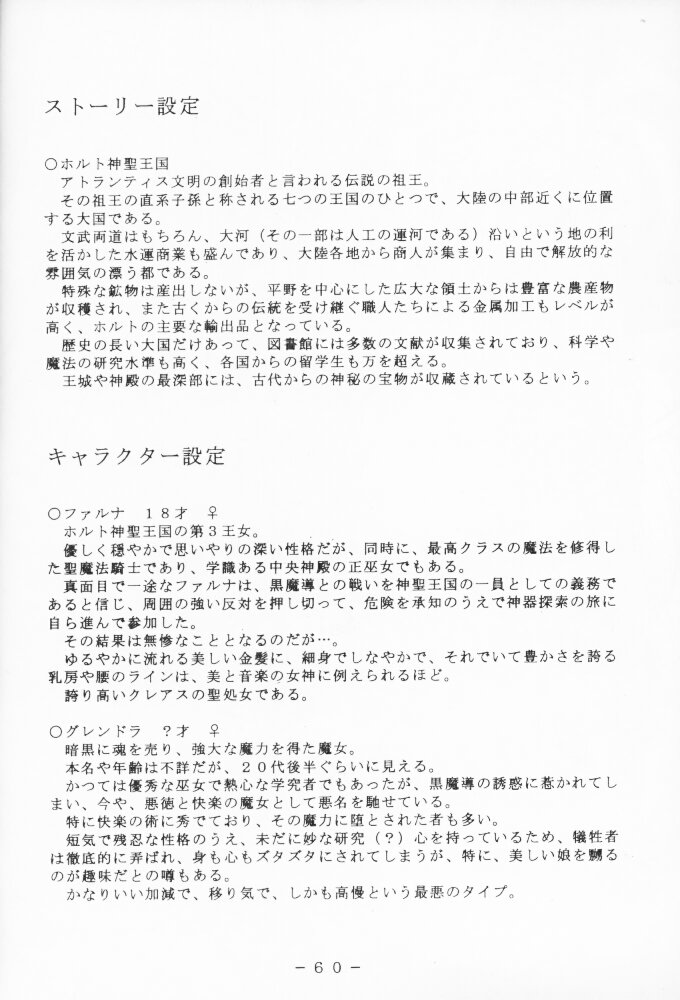 ストーリー設定
○ホルト神聖王国
アトランティス文明の創始者と言われる伝説の祖王。
その祖王の直系子孫と称される七つの王国のひとつで、大陸の中部近くに位置
する大国である。
文武両道はもちろん、大河（その一部は人工の運河である）沿いという地の利
を活かした水運商業も盛んであり、大陸各地から商人が集まり、自由で解放的な
雰囲気の漂う都である。
特殊な鉱物は産出しないが、平野を中心にした広大な領土からは豊富な農産物
が収穫され、また古くからの伝統を受け継ぐ職人たちによる金属加工もレベルが
高く、ホルトの主要な輸出品となっている。
歴史の長い大国だけあって、図書館には多数の文献が収集されており、科学や
魔法の研究水準も高く、各国からの留学生も万を超える。
王城や神殿の最深部には、古代からの神秘の宝物が収蔵されているという。
キャラクター設定
○ファルナ　１８才　♀
ホルト神聖王国の第３王女。
優しく穏やかで思いやりの深い性格だが、同時に、最高クラスの魔法を修得し
た聖魔法騎士であり、学識ある中央神殿の正巫女でもある。
真面目で一途なファルナは、黒魔導との戦いを神聖王国の一員としての義務で
あると信じ、周囲の強い反対を押し切って、危険を承知のうえで神器探索の旅に
自ら進んで参加した。
その結果は無惨なこととなるのだが…。
ゆるやかに流れる美しい金髪に、細身でしなやかで、それでいて豊かさを誇る
乳房や腰のラインは、美と音楽の女神に例えられるほど。
誇り高いクレアスの聖処女である。
○グレンドラ　？才　♀
暗黒に魂を売り、強大な魔力を得た魔女。
本名や年齢は不詳だが、２０代後半ぐらいに見える。
かつては優秀な巫女で熱心な学究者でもあったが、黒魔導の誘惑に惹かれてし
まい、今や、悪徳と快楽の魔女として悪名を馳せている。
特に快楽の術に秀でており、その魔力に堕とされた者も多い。
短気で残忍な性格のうえ、未だに妙な研究（？）心を持っているため、犠牲者
は徹底的に弄ばれ、身も心もズタズタにされてしまうが、特に、美しい娘を嬲る
のが趣味だとの噂もある。
かなりいい加減で、移り気で、しかも高慢という最悪のタイプ。
－６０－